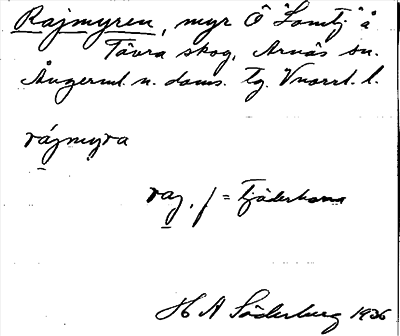 Rajmyren, myr Ö "Lomtj." å
Tävra skog, Arnäs sn.
Ångerml. n. doms. tg. Vnorrl. l.
rájmyra
raj, f = Fjäderhare
H A Söderberg 1936